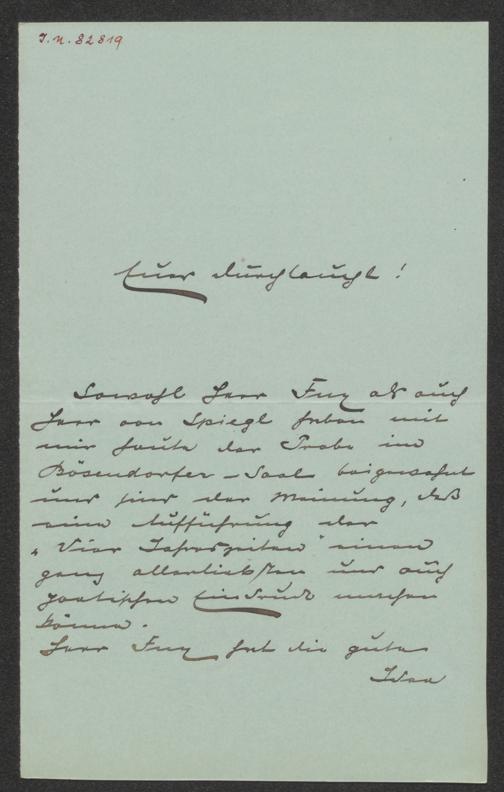 I.N. 82819
Euer Durchlaucht!
Sowohl Herr Fux als auch
Herr von Spiegl haben mit
mir heute der Probe im
Bösendorfer-Saal beigewohnt
und sind der Meinung, daß
eine Aufführung der
„Vier Jahreszeiten" einen
ganz allerliebsten und auch
poetischen Eindruck machen
könne.
Herr Fux hat die gute
Idee